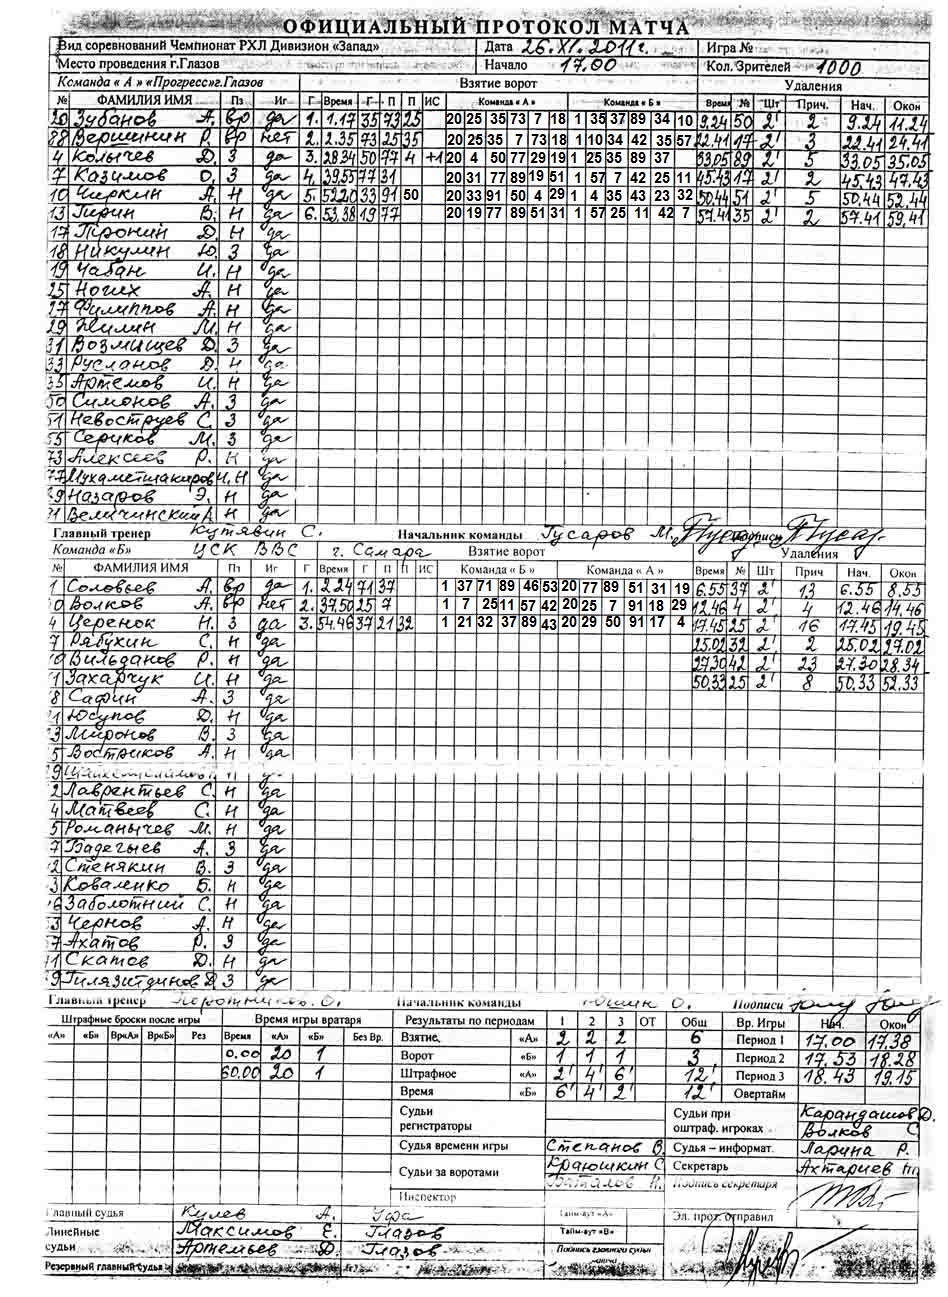 ОФИЦИАЛЬНЫЙ ПРОТОКОЛ МАТЧА
Вид соревнований Чемпионат РХЛ Дивизион «Запад» Дата 26.XI.2011г. Игра №
Место проведения г.Глазов Начало 17.00 Кол. Зрителей 1000
Команда « А » «Прогресс»г.Глазов Взятие ворот Удаления
№ ФАМИЛИЯ ИМЯ Пз Иг Г Время Г П П ИС Команда « А » Команда « Б » Время № Шт Прич. Нач. Окон
20 Зубанов А. вр да 1. 1.17 35 73 25 20 25 35 73 7 18 1 35 37 89 34 10 9.24 50 2' 2 9.24 11.24
88 Вершинин Р. вр нет 2. 2.35 73 25 35 20 25 35 7 73 18 1 10 34 42 35 57 22.41 17 2' 3 22.41 24.41
4 Колычев Д. З да 3. 28.34 50 77 4 +1 20 4 50 77 29 19 1 25 35 89 37 33.05 89 2' 5 33.05 35.05
7 Казимов О. З да 4. 39.55 77 31 20 31 77 89 19 51 1 57 7 42 25 11 45.43 17 2' 2 45.43 47.43
10 Чиркин А. Н да 5. 52.20 33 91 50 20 33 91 50 4 29 1 4 35 43 23 32 50.44 51 2' 5 50.44 52.44
13 Гирин В. Н да 6. 53.38 19 77 20 19 77 89 51 31 1 57 25 11 42 7 57.41 35 2' 2 57.41 59.41
17 Тронин Д. Н да
18 Никулин Ю. З да
19 Чабан И. Н да
25 Ногих А. Н да
27 Филиппов А. Н да
29 Жилин М. Н да
31 Возмищев Д. З да
33 Русланов Д. Н да
35 Артемов И. Н да
50 Симонов А. З да
51 Невоструев С. З да
55 Сериков М. З да
73 Алексеев Р. Н да
77 Мухаметшакиров И. Н да
89 Назаров Э. Н да
91 Величинский А. Н да
Главный тренер Кутявин С. Начальник команды Гусаров М. Подписи
Команда «Б» ЦСК ВВС г. Самара Взятие ворот Удаления
№ ФАМИЛИЯ ИМЯ Пз Иг Г Время Г П П ИС Команда « Б » Команда « А » Время № Шт Прич Нач. Окон
1 Соловьев А. вр да 1. 2.24 71 37 1 37 71 89 46 53 20 77 89 51 31 19 6.55 37 2' 13 6.55 8.55
0 Волков А. вр нет 2. 37.50 25 7 1 7 25 11 57 42 20 25 7 91 18 29 12.46 4 2' 4 12.46 14.46
4 Церенок Н. З да 3. 54.46 37 21 32 1 21 32 37 89 43 20 29 50 91 17 4 17.45 25 2' 16 17.45 19.45
7 Рябухин С. Н да 25.02 32 2' 2 25.02 27.02
10 Вильданов Р. Н да 27.30 42 2' 23 27.30 28.34
1 Захарчук И. Н да 50.33 25 2' 8 50.33 52.33
8 Сафин А. З да
1 Юсупов Д. Н да
3 Миронов В. З да
5 Востриков А. Н да
9
2 Лаврентьев С. Н да
4 Матвеев С. Н да
5 Романычев М. Н да
7 Бадегыев А. З да
2 Стенякин В. З да
3 Коваленко Б. Н да
6 Заболотний С. Н да
3 Чернов А. Н да
7 Ахатов Р. З да
1 Скатов Д. Н да
9 Гилязитдинов Д. З да
Главный тренер О. Начальник команды Юшин О. Подписи
Штрафные броски после игры Время игры вратаря Результаты по периодам 1 2 3 ОТ Общ Вр. Игры Нач. Окон
«А» «Б» Вр«А» Вр«Б» Рез Время «А» «Б» Без Вр. Взятие «А» 2 2 2 6 Период 1 17.00 17.38
0.00 20 1 Ворот «Б» 1 1 1 3 Период 2 17.53 18.28
60.00 20 1 Штрафное «А» 2' 4' 6' 12' Период 3 18.43 19.15
Время «Б» 6' 4' 2' 12' Овертайм
Судьи регистраторы Судьи при оштраф. игроках Карандашов Д. Волков С.
Судья времени игры Степанов В. Судья – информат. Ларина Р.
Судьи за воротами Краюшкин С. Баталов Н. Секретарь Ахтариев
Подпись секретаря
Инспектор
Главный судья Кулев А. Уфа Тайм-аут «А» Эл. прот. отправил
Линейные Максимов Е. Глазов Тайм-аут «В»
судьи Артемьев Д. Глазов Подпись главного судьи матча
Резервный главный судья